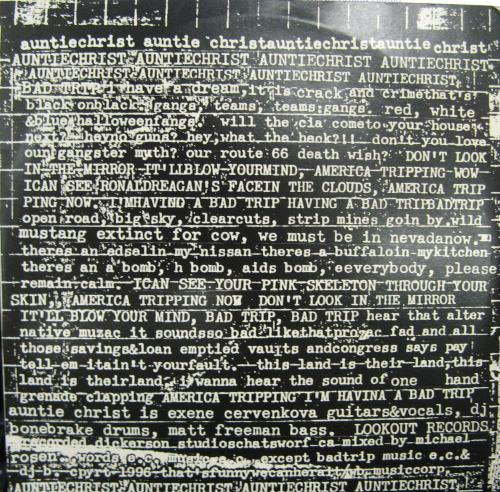 auntiechrist auntie christauntiechristauntie christ
AUNTIECHRIST AUNTIECHRIST AUNTIECHRIST AUNTIECHRIST
AUNTIECHRIST AUNTIECHRIST AUNTIECHRIST AUNTIECHRIST
BAD TRIP i have a dream, it is crack and crimethat's
black onblack gangs, teams, teams:gangs red, white
&blue halloweenfangs. will the cia cometo your house
next? heyno guns? hey, what the heck?!! don't you love
our gangster myth? our route 66 death wish? DON'T LOOK
IN THE MIRROR IT'LLBLOW YOURMIND, AMERICA TRIPPING NOW
ICAN SEE RONALDREAGAN'S FACEIN THE CLOUDS, AMERICA TRIP
PING NOW. I'MHAVING A BAD TRIP HAVING A BAD TRIPBADTRIP
open road, big sky, clearcuts, strip mines goin by, wild
mustang extinct for cow, we must be in nevadanow.
theres an edselin my nissan theres a buffaloin mykitchen
theres an a bomb, h bomb, aids bomb, eeverybody, please
remain calm. ICAN SEE YOUR PINK SKELETON THROUGH YOUR
SKIN, AMERICA TRIPPING NOW DON'T LOOK IN THE MIRROR
IT'LL BLOW YOUR MIND, BAD TRIP, BAD TRIP hear that alter
native muzac it soundsso bad likethatprozac fad and all
those savings&loan emptied vaults andcongress says pay
tell em itain't yourfault. this land is their land, this
land is theirland, iwanna hear the sound of one hand
grenade clapping AMERICA TRIPPING I'M HAVINA A BAD TRIP
auntie christ is exene cervenkova guitars&vocals, dj
bonebrake drums, matt freeman bass. LOOKOUT RECORDS
recorded dickerson studioschatsworf ca mixed by michael
rosen words e.c. music e.c. except badtrip music e.c.&
dj b. cpyrt 1996 that'sfunnyvecanheratt/wb musiccorp.
AUNTIECHRIST AUNTIECHRIST AUNTIECHRIST AUNTIECHRIST